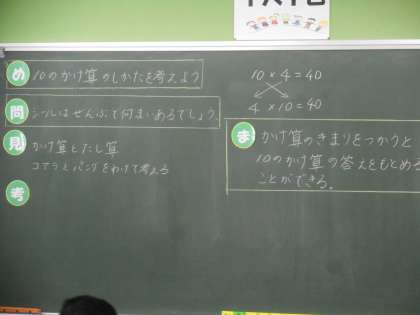 め 10のかけ算のしかたを考えよう
問 シールはぜんぶで何まいあるでしょう。
見 かけ算とたし算
コアラとパンダをわけて考える
考
10×4=40
4×10=40
ま かけ算のきまりをつかうと
10のかけ算の答えをもとめる
ことができる。